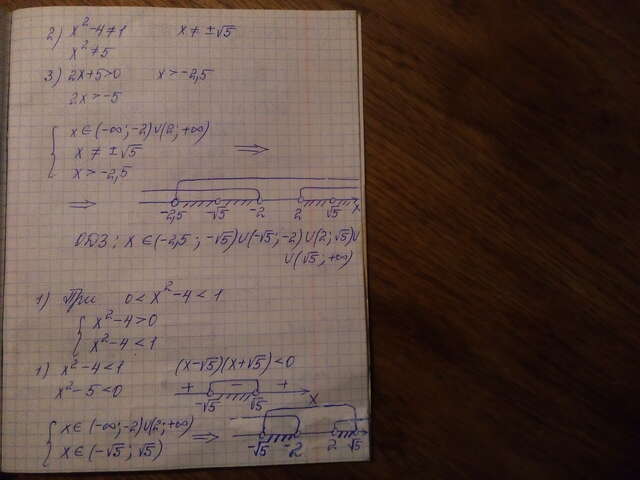 2) x²-4≠1 x≠±√5
x²≠5
3) 2x+5>0 x>-2,5
2x>-5
{ x∈(-∞;-2)∪(2;+∞)
x≠±√5 ⟹
x>-2,5
⟹ -2,5 -√5 -2 2 √5 x
ОДЗ: x∈(-2,5;-√5)∪(-√5;-2)∪(2;√5)∪
∪(√5;+∞)
1) При 0<x²-4<1
{ x²-4>0
x²-4<1
1) x²-4<1 (x-√5)(x+√5)<0
x²-5<0 + - +
-√5 √5 x
{ x∈(-∞;-2)∪(2;+∞)
x∈(-√5;√5) ⟹ -√5 -2 2 √5